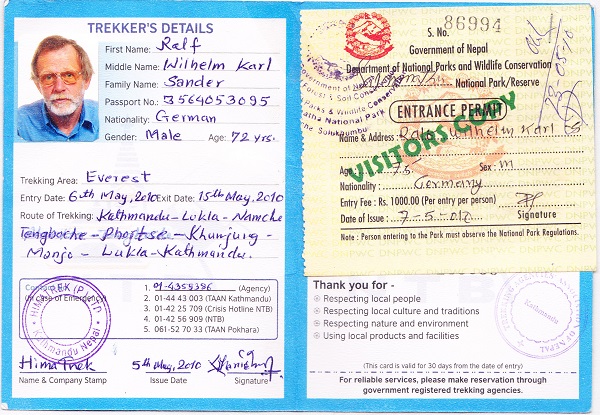 TREKKER'S DETAILS
First Name: Ralf
Middle Name: Wilhelm Karl
Family Name: Sander
Passport No.: 3564053095
Nationality: German
Gender: Male Age: 72 yrs.
Trekking Area: Everest
Entry Date: 6th May, 2010 Exit Date: 15th May, 2010
Route of Trekking: Kathmandu - Lukla - Namche
Tengboche - Phortse - Khunjung -
Monjo - Lukla - Kathmandu.
Contacts:
(In case of Emergency)
1. 01-4358396 (Agency)
2. 01-44 43 003 (TAAN Kathmandu)
3. 01-42 25 709 (Crisis Hotline NTB)
4. 01-42 56 909 (NTB)
5. 061-52 70 33 (TAAN Pokhara)
HIMA TREK (P) LTD
Kathmandu Nepal
Hima Trek 5th May, 2010
Name & Company Stamp Issue Date Signature
S. No. 86994
Government of Nepal
Department of National Parks and Wildlife Conservation
National Park/Reserve
ENTRANCE PERMIT
VISITORS COPY
Name & Address: Ralf Wilhelm Karl S
Age: 75 Sex: M
Nationality: Germany
Entry Fee: Rs. 1000.00 (Per entry per person)
Date of Issue: 7-5-010 Signature
Note: Person entering to the Park must observe the National Park Regulations.
Thank you for -
Respecting local people
Respecting local culture and traditions
Respecting nature and environment
Using local products and facilities
Kathmandu
(This card is valid for 30 days from the date of entry)
For reliable services, please make reservation through
government registered trekking agencies.